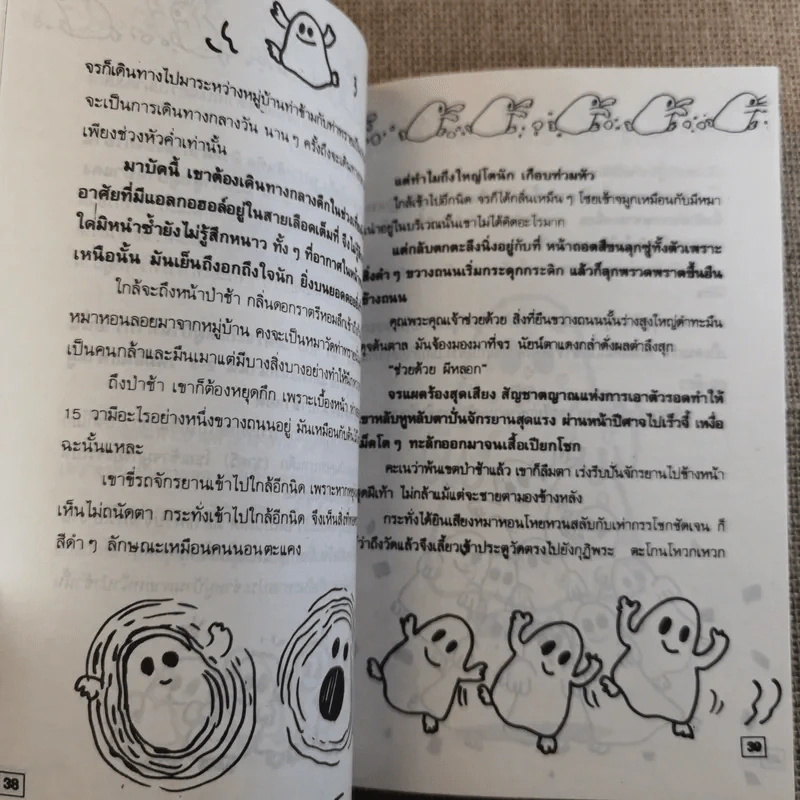 จรก็เดินทางไปมาระหว่างหมู่บ้านท่าข้ามกับท่าพระ
จะเป็นการเดินทางกลางวัน นาน ๆ ครั้งถึงจะเดินทาง
เพียงช่วงหัวค่ำเท่านั้น
มาบัดนี้ เขาต้องเดินทางกลางดึกในช่วง
อาศัยที่มีแอลกอฮอล์อยู่ในสายเลือดเต็มที่ จึงไม่
ใดมิหนำซ้ำยังไม่รู้สึกหนาว ทั้ง ๆ ที่อากาศใน
เหนือนั้น มันเย็นถึงอกถึงใจนัก ยิ่งบนยอดดอย
ใกล้จะถึงหน้าป่าช้า กลิ่นดอกราตรีหอม
หมาหอนลอยมาจากหมู่บ้าน คงจะเป็นหมาวัดท่าพระ
เป็นคนกล้าและมึนเมาแต่มีบางสิ่งบางอย่างทำให้
ถึงป่าช้า เขาก็ต้องหยุดกึก เพราะเบื้องหน้า
15 วามีอะไรอย่างหนึ่งขวางถนนอยู่ มันเหมือนกับ
ฉะนั้นแหละ
เขาขี่รถจักรยานเข้าไปใกล้อีกนิด เพราะหาก
เห็นไม่ถนัดตา กระทั่งเข้าไปใกล้อีกนิด จึงเห็นสิ่ง
สีดำ ๆ ลักษณะเหมือนคนนอนตะแคง
38
แต่ทำไมถึงใหญ่โตนัก เกือบท่วมหัว
ใกล้เข้าไปอีกนิด จรก็ได้กลิ่นเหม็น ๆ โชยเข้าจมูกเหมือนกับมีหมา
เน่าอยู่ในบริเวณนั้นเขาไม่ได้คิดอะไรมาก
แต่กลับตกตะลึงนิ่งอยู่กับที่ หน้าถอดสีขนลุกซู่ทั้งตัวเพราะ
สิ่งดำ ๆ ขวางถนนเริ่มกระดุกกระดิก แล้วก็ลุกพรวดพราดขึ้นยืน
ข้างถนน
คุณพระคุณเจ้าช่วยด้วย สิ่งที่ยืนขวางถนนนั้นร่างสูงใหญ่ดำทะมึน
ดุจต้นตาล มันจ้องมองมาที่จร นัยน์ตาแดงก่ำดั่งผลตำลึงสุก
"ช่วยด้วย ผีหลอก"
จรแผดร้องสุดเสียง สัญชาตญาณแห่งการเอาตัวรอดทำให้
เขาหลับหูหลับตาปั่นจักรยานสุดแรง ผ่านหน้าปีศาจไปเร็วจี๋ เหงื่อ
เม็ดโต ๆ ทะลักออกมาจนเสื้อเปียกโชก
คะเนว่าพ้นเขตป่าช้าแล้ว เขาก็ลืมตา เร่งรีบปั่นจักรยานไปข้างหน้า
สุดฝีเท้า ไม่กล้าแม้แต่จะชายตามองข้างหลัง
กระทั่งได้ยินเสียงหมาหอนโหยหวนสลับกับเห่ากรรโชกชัดเจน ก็
ว่าถึงวัดแล้วจึงเลี้ยวเข้าประตูวัดตรงไปยังกุฏิพระ ตะโกนโหวกเหวก
39